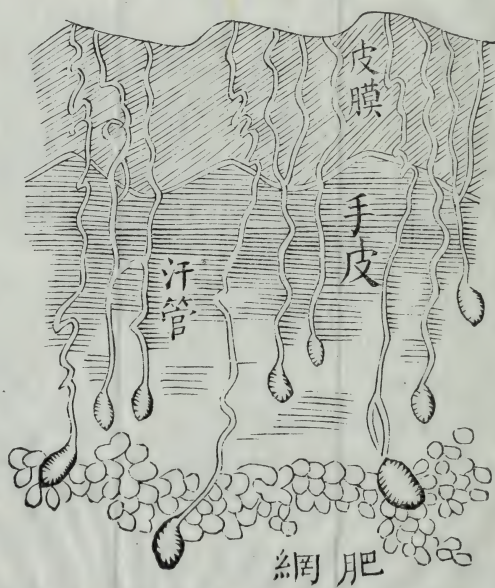 皮膜
手皮
汗管
肥網